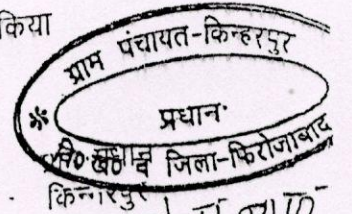 किया
ग्राम पंचायत-किन्हरपुर
प्रधान
वि०ख० व जिला-फिरोजाबाद
प्रधान
किन्हरपुर